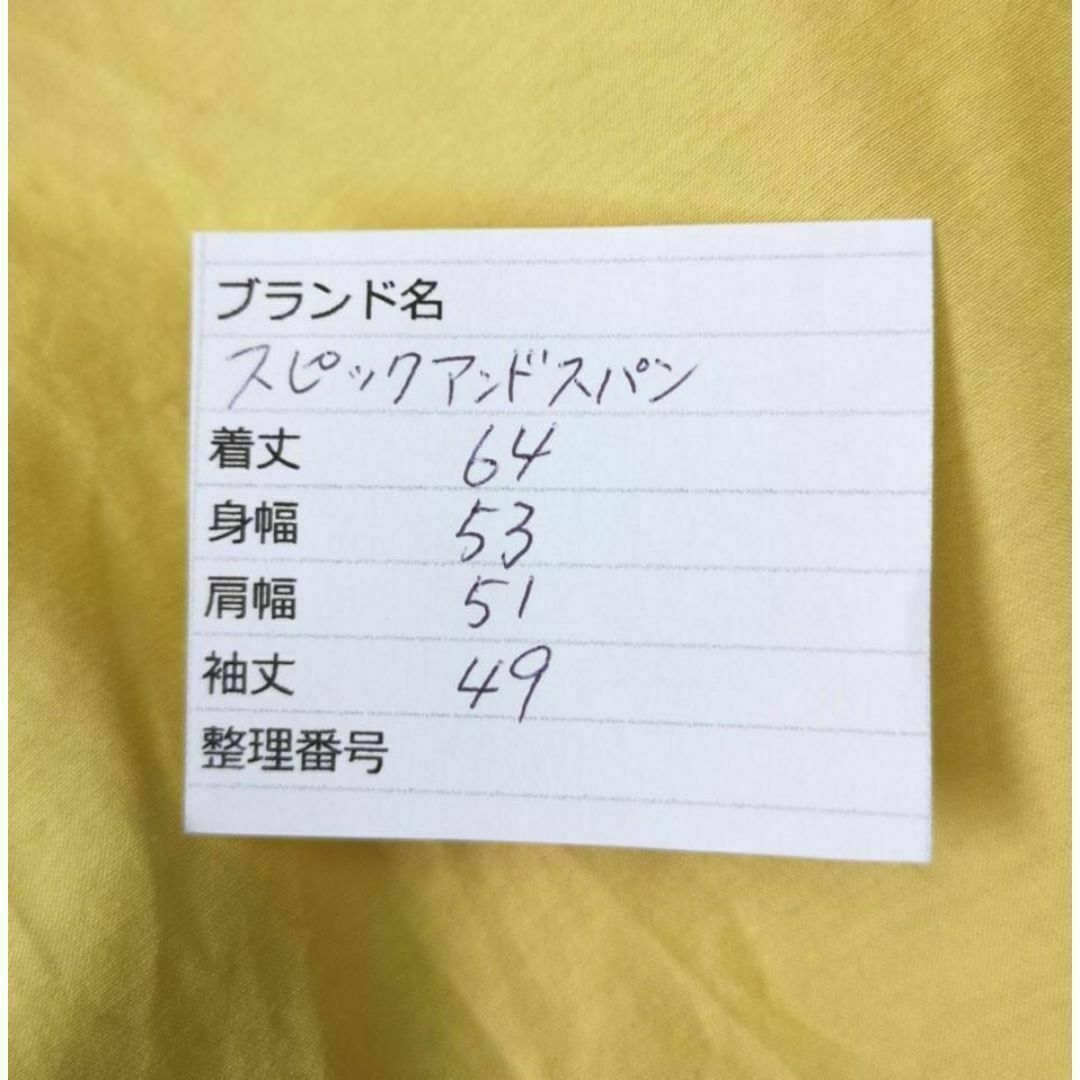 ブランド名
スピックアンドスパン
着丈 64
身幅 53
肩幅 51
袖丈 49
整理番号